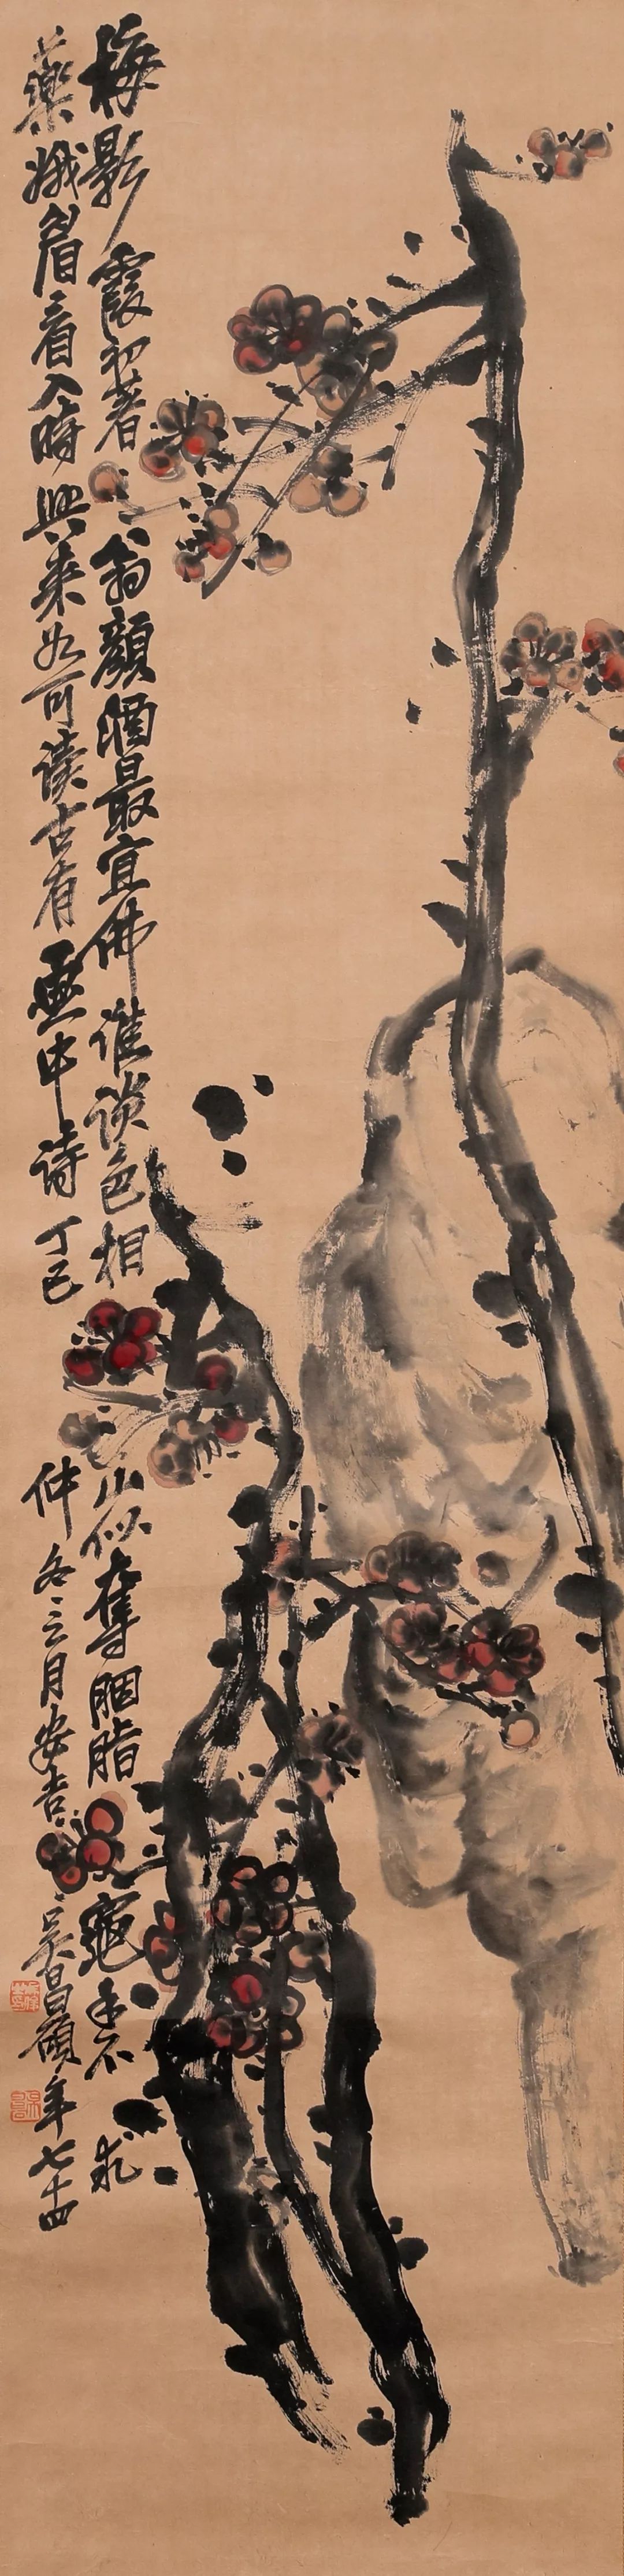 梅影霞初著翁顏酒最宜佛誰談色相山似奪胭脂龜手不
藥娥眉看入時興来如可讀古有画中詩丁巳仲冬之月安吉吳昌碩年七十四